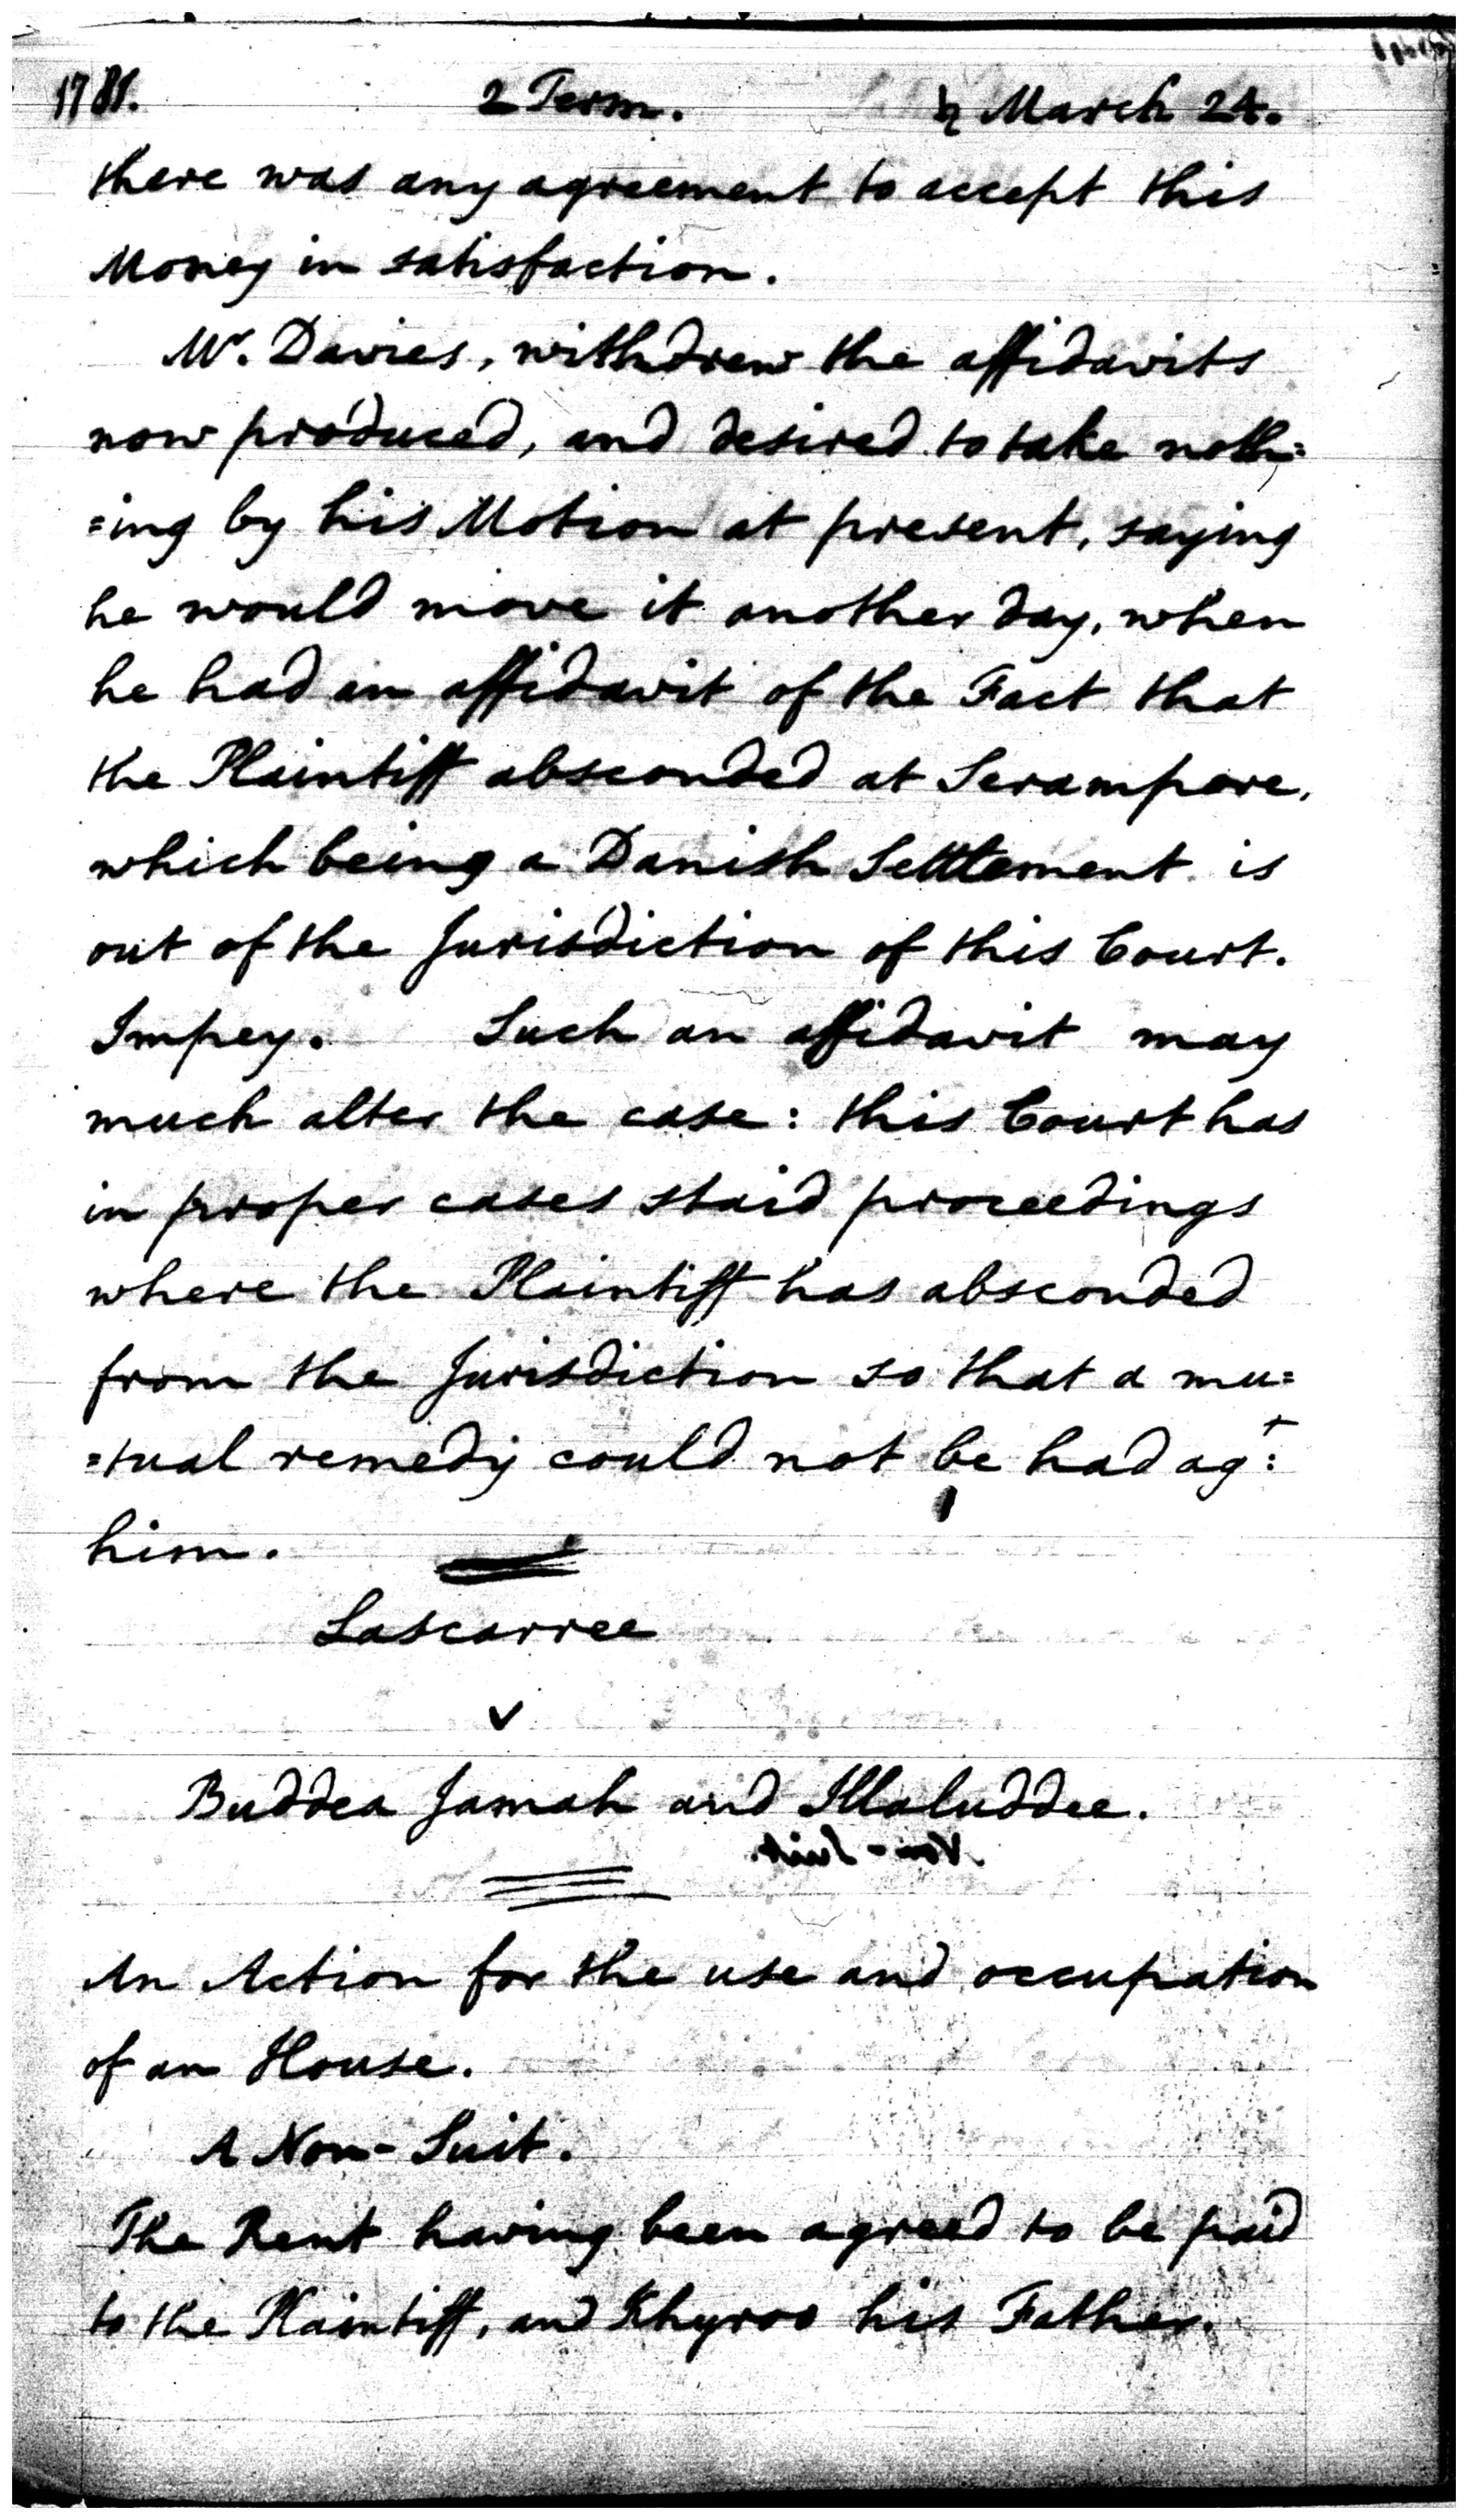 1781. 2 Term. ♄ March 24.
there was any agreement to accept this
Money in satisfaction.
Mr. Davies, withdrew the affidavits
now produced, and desired to take noth=
=ing by his Motion at present, saying
he would move it another day, when
he had an affidavit of the Fact that
the Plaintiff absconded at Serampore,
which being a Danish Settlement is
out of the Jurisdiction of this Court.
Impey. Such an affidavit may
much alter the case: this Court has
in proper cases staid proceedings
where the Plaintiff has absconded
from the Jurisdiction so that a mu=
=tual remedy could not be had agt:
him.
Lascarree
v
Buddea Jamah and Illaluddee.
Non-Suit.
An Action for the use and occupation
of an House.
A Non-Suit.
The Rent having been agreed to be paid
to the Plaintiff, and Khyroo his Father.